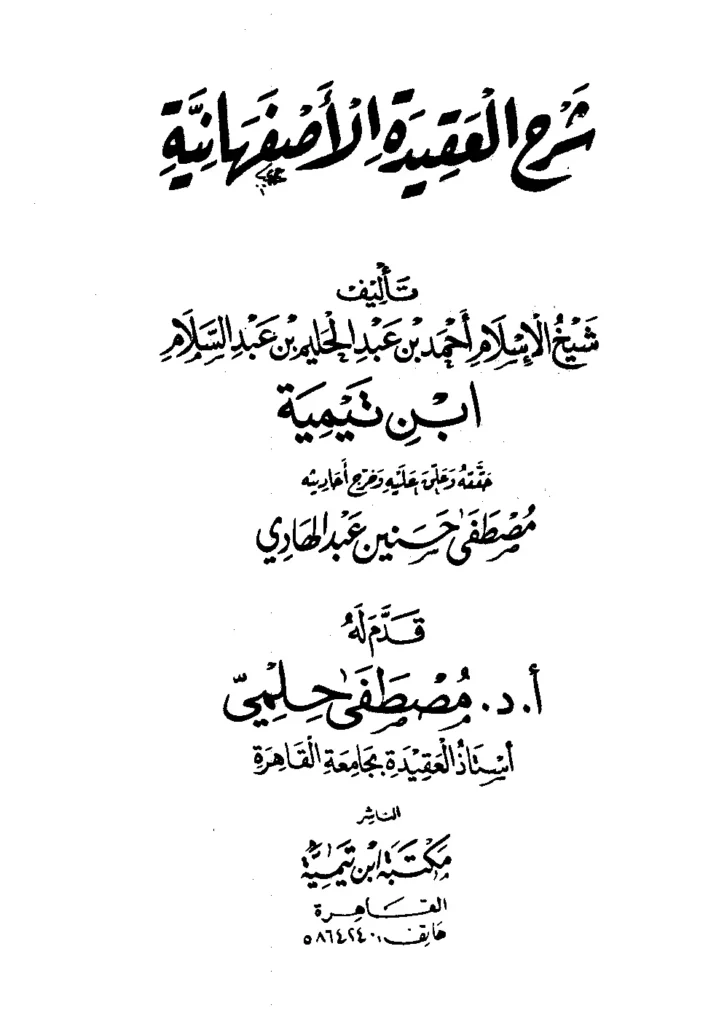 شَرْحُ الْعَقِيدَةِ الْأَصْفَهَانِيَّةِ
تَأليفُ
شَيْخُ الْإِسْلَامِ أَحْمَد بْن عَبْدِ الْحَلِيمِ بْن عَبْدِ السَّلَامِ
ابْنِ تَيْمِيَة
حَقَّقَهُ وَعَلَّقَ عَلَيْهِ وَخَرَّجَ أَحَادِيثَه
مُصْطَفَى حَسَنين عَبْد الهَادِي
قَدَّمَ لَهُ
أ. د. مُصْطَفَى حِلمِيّ
أُسْتَاذُ الْعَقِيْدَةِ بجَامِعَةِ القَاهِرَة
الناشِر
مَكْتَبَة ابْن تَيْمِيَّة
القــاهـرة
هَاتِف: ٥٨٦٤٢٤٠